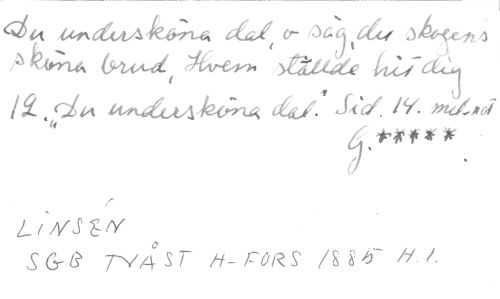 Du undersköna dal, o säg, du skogens
sköna brud, Hvem ställde hit dig
12. „Du undersköna dal." Sid. 14. mel.-not
G. *****.
LINSÉN
SGB TVÅST H-FORS 1885 H.1.